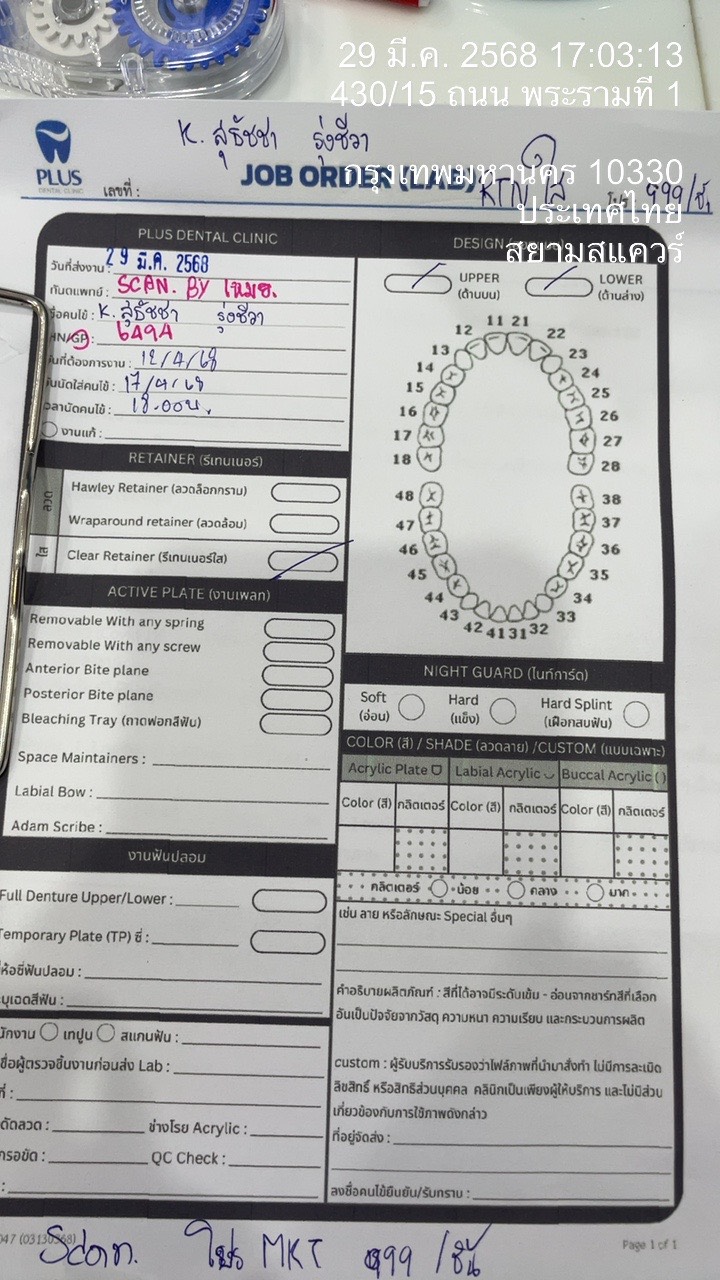 29 มี.ค. 2568 17:03:13
430/15 ถนน พระรามที่ 1
กรุงเทพมหานคร 10330
ประเทศไทย
สยามสแควร์
K. สุธัชชา รุ่งชีวา
PLUS
DENTAL CLINIC
เลขที่ :
JOB ORDER (LAB)
RTN ใส
โปร 999/ชิ้น
PLUS DENTAL CLINIC
วันที่ส่งงาน : 29 มี.ค. 2568
ทันตแพทย์ : SCAN. BY
ชื่อคนไข้ : K. สุธัชชา รุ่งชีวา
HN/GP : 6494
วันที่ต้องการงาน : 12/4/68
วันนัดใส่คนไข้ : 17/4/68
เวลานัดคนไข้ : 18.00น.
งานแก้ :
RETAINER (รีเทนเนอร์)
ลวด
Hawley Retainer (ลวดล็อกกราม)
Wraparound retainer (ลวดล้อม)
ใส
Clear Retainer (รีเทนเนอร์ใส)
ACTIVE PLATE (งานเพลท)
Removable With any spring
Removable With any screw
Anterior Bite plane
Posterior Bite plane
Bleaching Tray (ถาดฟอกสีฟัน)
Space Maintainers :
Labial Bow :
Adam Scribe :
งานฟันปลอม
Full Denture Upper/Lower :
Temporary Plate (TP) ซี่ :
ยี่ห้อซี่ฟันปลอม :
ระบุเฉดสีฟัน :
พนักงาน เทปูน สแกนฟัน :
ชื่อผู้ตรวจชิ้นงานก่อนส่ง Lab :
ดัดลวด : ช่างโรย Acrylic :
กรอขัด : QC Check :
DESIGN
UPPER
(ด้านบน)
LOWER
(ด้านล่าง)
11 21
12 22
13 23
14 24
15 25
16 26
17 27
18 28
48 38
47 37
46 36
45 35
44 34
43 33
42 41 31 32
NIGHT GUARD (ไนท์การ์ด)
Soft
(อ่อน)
Hard
(แข็ง)
Hard Splint
(เฝือกสบฟัน)
COLOR (สี) / SHADE (ลวดลาย) /CUSTOM (แบบเฉพาะ)
Acrylic Plate Labial Acrylic Buccal Acrylic ( )
Color (สี) กลิตเตอร์ Color (สี) กลิตเตอร์ Color (สี) กลิตเตอร์
กลิตเตอร์ น้อย กลาง มาก
เช่น ลาย หรือลักษณะ Special อื่นๆ
คำอธิบายผลิตภัณฑ์ : สีที่ได้อาจมีระดับเข้ม - อ่อนจากชาร์ทสีที่เลือก
อันเป็นปัจจัยจากวัสดุ ความหนา ความเรียบ และกระบวนการผลิต
custom : ผู้รับบริการรับรองว่าไฟล์ภาพที่นำมาสั่งทำ ไม่มีการละเมิด
ลิขสิทธิ์ หรือสิทธิส่วนบุคคล คลินิกเป็นเพียงผู้ให้บริการ และไม่มีส่วน
เกี่ยวข้องกับการใช้ภาพดังกล่าว
ที่อยู่จัดส่ง :
ลงชื่อคนไข้ยืนยัน/รับทราบ :
047 (03130368)
Page 1 of 1
Scan. โปร MKT 999 /ชิ้น